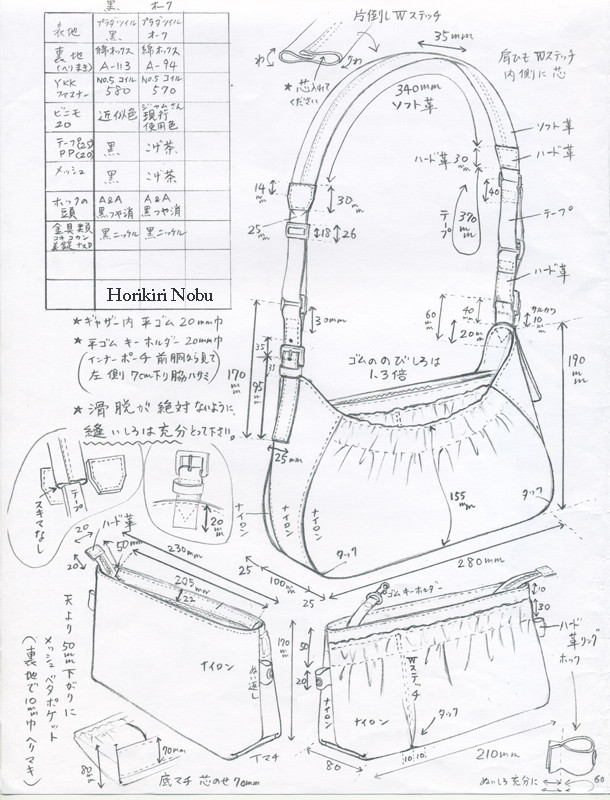 黒 オーク
表地 プラダツイル 黒 プラダツイル オーク
裏地 (へりまき) 綿ホックス A-113 綿ホックス A-94
YKK ファスナー No.5 コイル 580 No.5 コイル 570
ビニモ 20 近似色 ジャムさん 現行 使用色
テープ(25) PP(20) 黒 こげ茶
メッシュ 黒 こげ茶
ホックの頭 A&A 黒つや消 A&A 黒つや消
金具類 黒ニッケル 黒ニッケル
Horikiri Nobu
★ ギャザー内 平ゴム 20mm巾
★ 平ゴム キーホルダー 20mm巾
(インナーポーチ 前胴から見て
左側 7cm下り脇ハサミ)
★ 滑脱が絶対ないように、
縫いしろは充分とって下さい。
片倒しWステッチ
わ わ
★芯入れて
ください
35mm
肩ひもWステッチ
内側に芯
340mm
ソフト革
ソフト革
ハード革
ハード革 30mm
40
14mm
30mm
25mm
18 26
テープ 370mm
テープ
ハード革
30mm
60mm
40mm
サルカン 10mm
20mm
190mm
170mm
95mm
35
35
ゴムののびしろは
1.3倍
25mm
155mm
タック
タック
ナイロン
ナイロン
ナイロン
280mm
25
100mm
25
スキマなし
テープ
20mm
20
20
ハード革
50mm
230mm
205mm
22
170mm
ナイロン
ぬい返し
マチ
天より50mm下がりに
メッシュ ベタポケット
(裏地で10mm巾ヘリマキ)
70mm
80mm
底マチ 芯のせ 70mm
ゴムキーホルダー
10
30
ハード革リング
ホック
50
20
Wステッチ
ナイロン
タック
10 10
80
210mm
ぬいしろ充分に
60